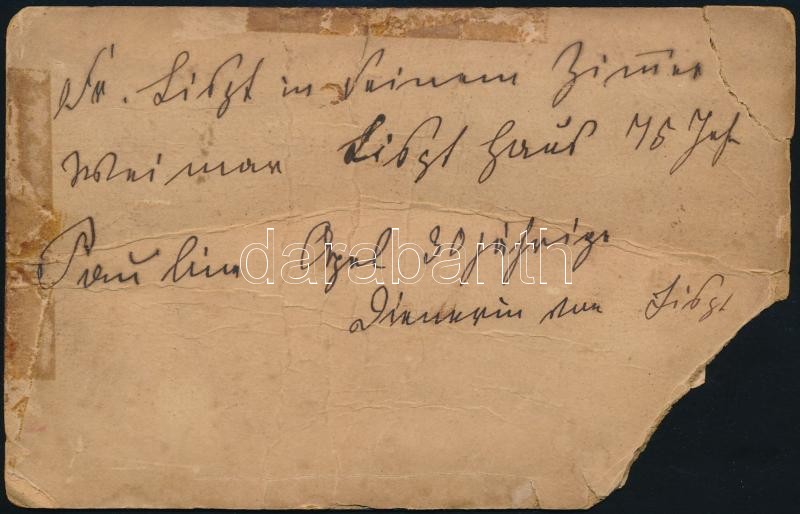 Fr. Liszt in seinem Zimmer
Weimar Liszt Haus 75 Jah
Pauline Apel jährige
Dienerin von Liszt
darabanth